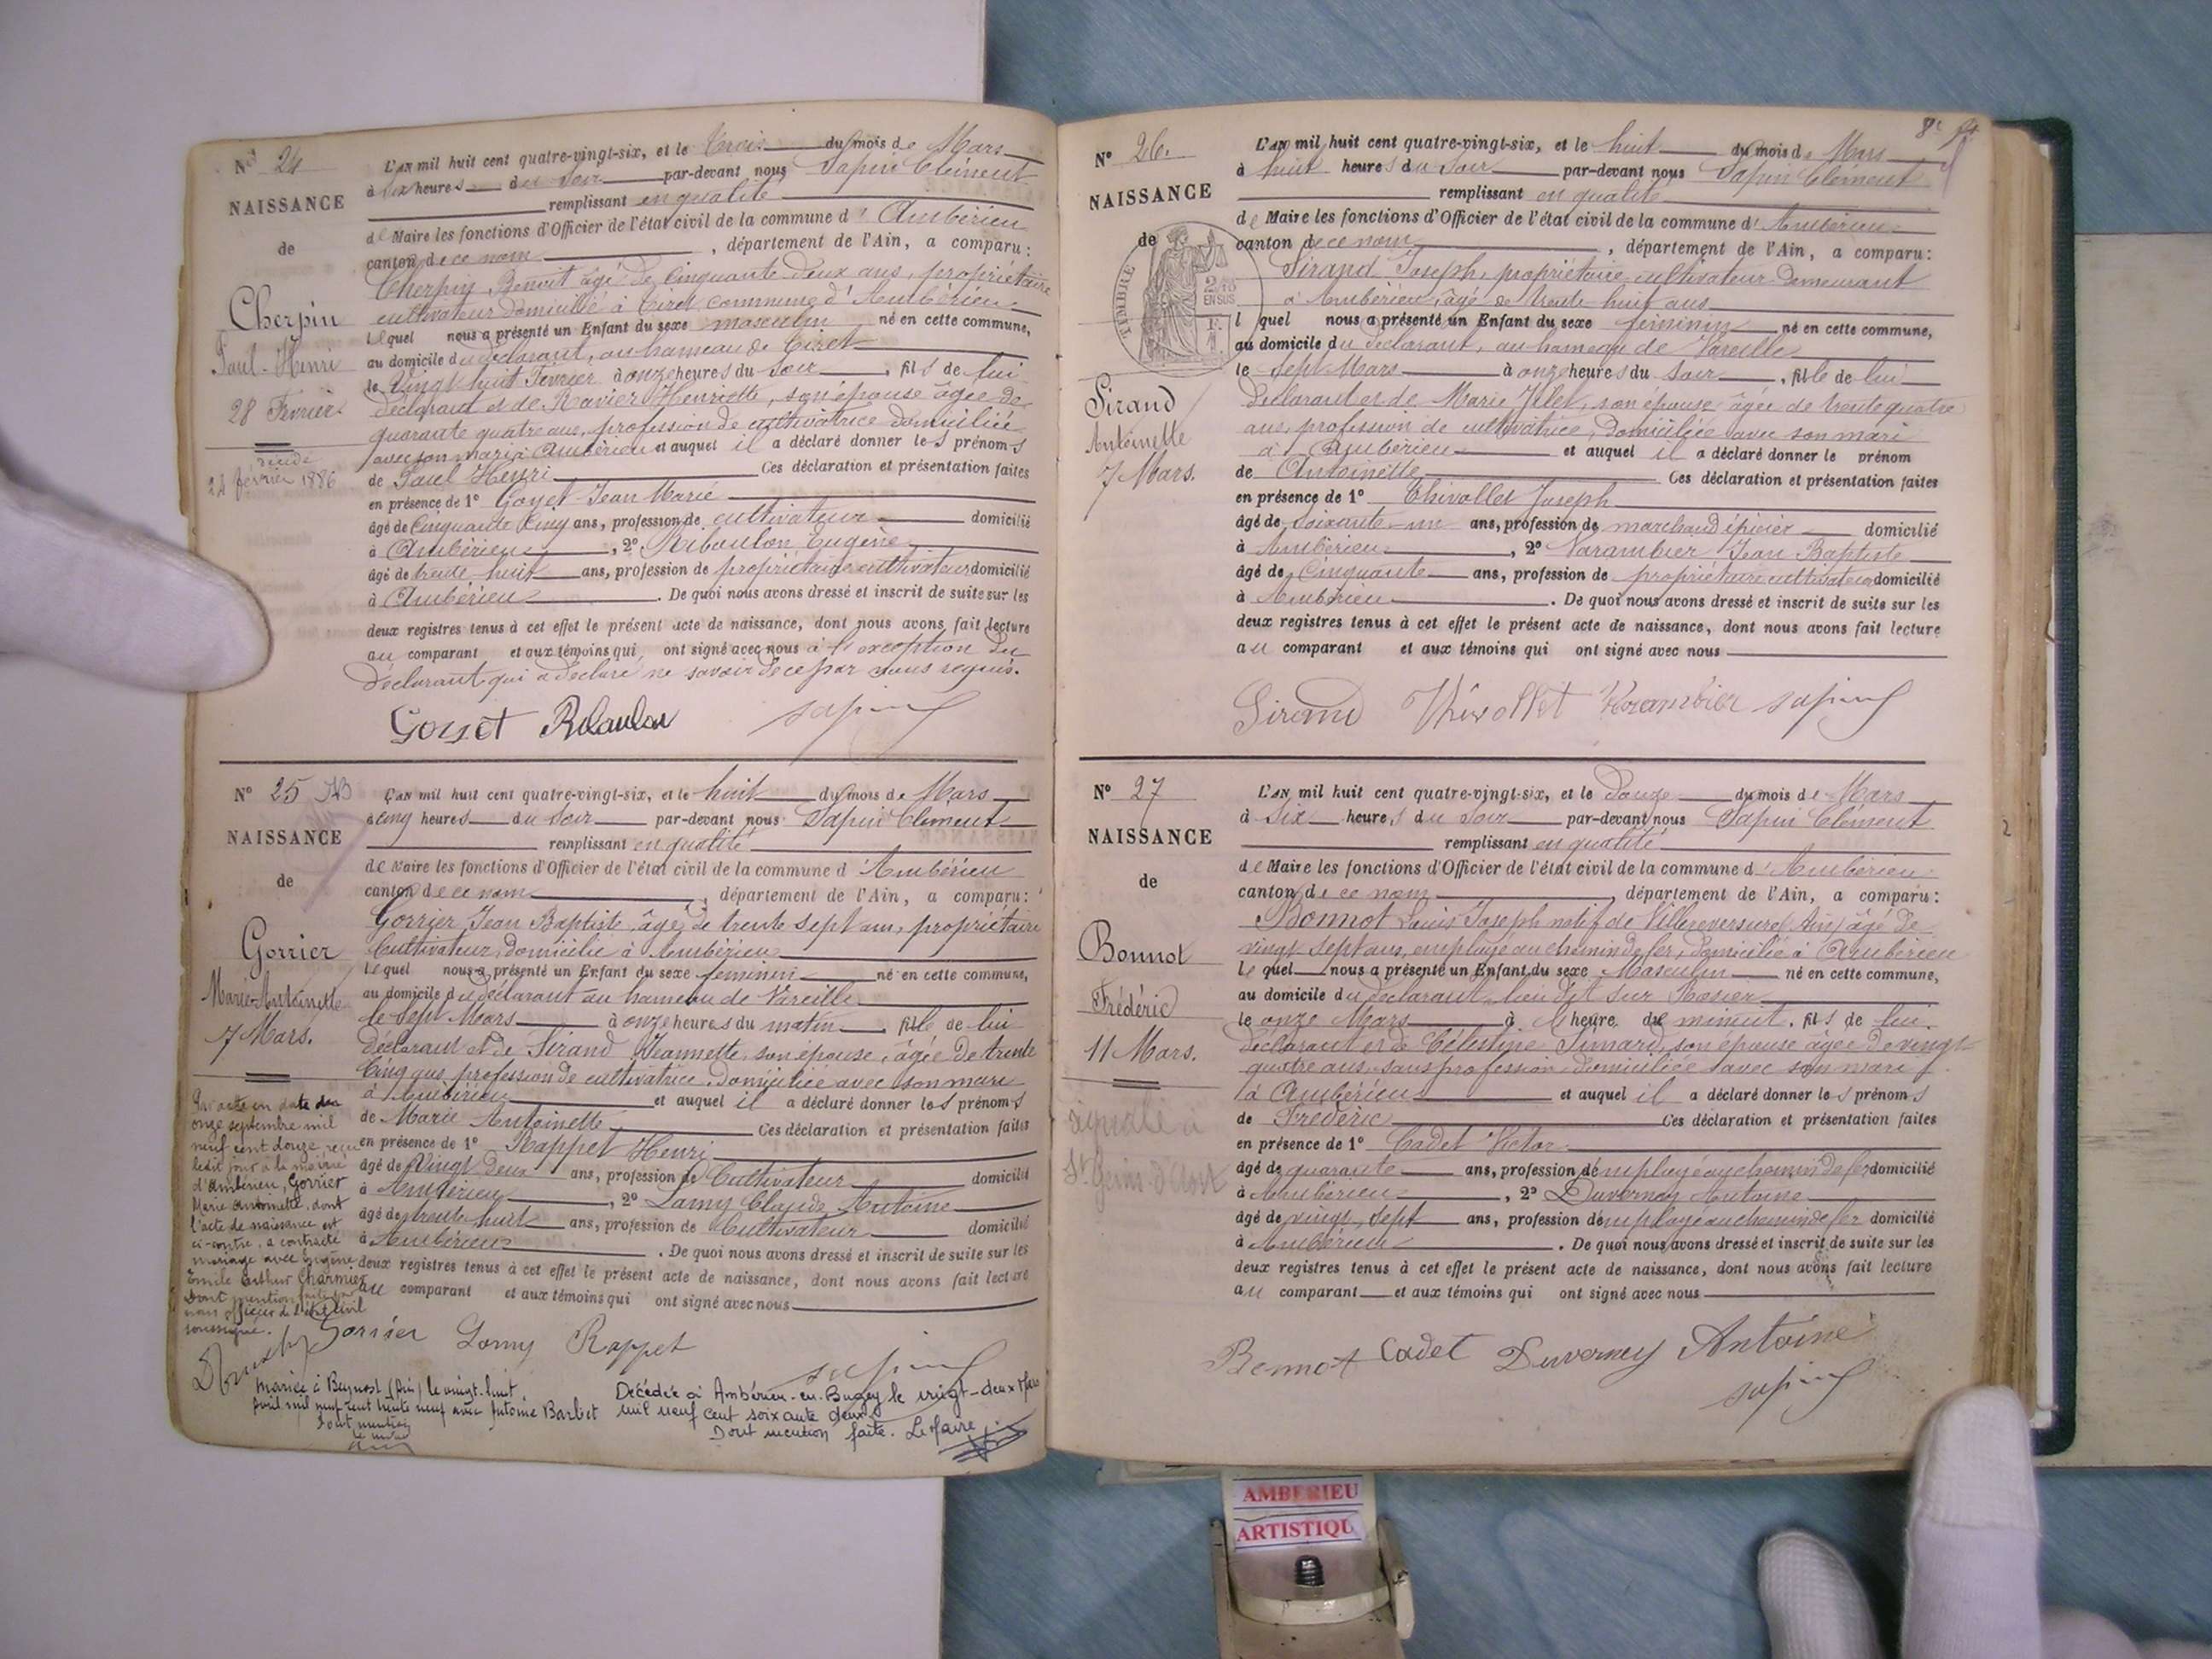 N° 24
NAISSANCE
de
Cherpin
Paul-Henri
28 Février.
24 février 1886
L'an mil huit cent quatre-vingt-six, et le trois du mois de Mars
à six heures du Soir par-devant nous Sapin Clément
remplissant en qualité
de Maire les fonctions d'Officier de l'état civil de la commune d'Ambérieu
canton de ce nom, département de l'Ain, a comparu:
Cherpin Benoit âgé de Cinquante deux ans, propriétaire
cultivateur domicilié à Tiret, commune d'Ambérieu
lequel nous a présenté un Enfant du sexe masculin né en cette commune,
au domicile du déclarant, au hameau de Tiret
le Vingt huit Février à onze heures du Soir, fils de lui
déclarant et de Ravier Henriette, son épouse âgée de
quarante quatre ans, profession de cultivatrice domiciliée
avec son mari à Ambérieu et auquel il a déclaré donner les prénoms
de Paul Henri Ces déclaration et présentation faites
en présence de 1° Goyet Jean Marie
âgé de Cinquante Cinq ans, profession de cultivateur domicilié
à Ambérieu, 2° Riboulon Eugène
âgé de trente huit ans, profession de propriétaire cultivateur domicilié
à Ambérieu. De quoi nous avons dressé et inscrit de suite sur les
deux registres tenus à cet effet le présent acte de naissance, dont nous avons fait lecture
au comparant et aux témoins qui ont signé avec nous à l'exception du
déclarant qui a déclaré ne savoir de ce par nous requis.
Goyet Riboulon Sapin
N° 25
NAISSANCE
de
Gorrier
Marie-Antoinette
7 Mars.
Par acte en date du
onze septembre mil
neuf cent douze, reçu
ledit jour à la mairie
d'Ambérieu, Gorrier
Marie Antoinette, dont
l'acte de naissance est
ci-contre, a contracté
mariage avec Eugène
Emile Arthur Charmier
Dont mention faite par
nous officier de l'état civil
soussigné.
L'an mil huit cent quatre-vingt-six, et le huit du mois de Mars
à cinq heures du Soir par-devant nous Sapin Clément
remplissant en qualité
de Maire les fonctions d'Officier de l'état civil de la commune d'Ambérieu
canton de ce nom, département de l'Ain, a comparu:
Gorrier Jean Baptiste, âgé de trente sept ans, propriétaire
Cultivateur, domicilié à Ambérieu
lequel nous a présenté un Enfant du sexe féminin né en cette commune,
au domicile du déclarant au hameau de Vareille
le Sept Mars à onze heures du matin, fille de lui
déclarant et de Sirand Jeannette, son épouse, âgée de trente
Cinq ans, profession de cultivatrice, domiciliée avec son mari
à Ambérieu et auquel il a déclaré donner les prénoms
de Marie Antoinette Ces déclaration et présentation faites
en présence de 1° Rappet Henri
âgé de Vingt deux ans, profession de Cultivateur domicilié
à Ambérieu, 2° Lamy Claude Antoine
âgé de trente huit ans, profession de Cultivateur domicilié
à Ambérieu. De quoi nous avons dressé et inscrit de suite sur les
deux registres tenus à cet effet le présent acte de naissance, dont nous avons fait lecture
au comparant et aux témoins qui ont signé avec nous
Gorrier Lamy Rappet
Sapin
Mariée à Beynost (Ain) le vingt-huit
avril mil neuf cent trente neuf avec Antoine Barbet
Dont mention
Décédée à Ambérieu-en-Bugey le vingt-deux Mars
mil neuf cent soixante deux
Dont mention faite. Le Maire
N° 26.
NAISSANCE
de
TIMBRE
EN SUS
Sirand
Antoinette
7 Mars.
L'an mil huit cent quatre-vingt-six, et le huit du mois de Mars
à huit heures du Soir par-devant nous Sapin Clément
remplissant en qualité
de Maire les fonctions d'Officier de l'état civil de la commune d'Ambérieu
canton de ce nom, département de l'Ain, a comparu:
Sirand Joseph, propriétaire cultivateur demeurant
à Ambérieu, âgé de trente huit ans
lequel nous a présenté un Enfant du sexe féminin né en cette commune,
au domicile du déclarant, au hameau de Vareille
le Sept Mars à onze heures du Soir, fille de lui
déclarant et de Marie Jilet, son épouse âgée de trente quatre
ans, profession de cultivatrice, domiciliée avec son mari
à Ambérieu et auquel il a déclaré donner le prénom
de Antoinette Ces déclaration et présentation faites
en présence de 1° Thivollet Joseph
âgé de soixante-un ans, profession de marchand épicier domicilié
à Ambérieu, 2° Varambier Jean Baptiste
âgé de Cinquante ans, profession de propriétaire cultivateur domicilié
à Ambérieu. De quoi nous avons dressé et inscrit de suite sur les
deux registres tenus à cet effet le présent acte de naissance, dont nous avons fait lecture
au comparant et aux témoins qui ont signé avec nous
Sirand Thivollet Varambier Sapin
N° 27
NAISSANCE
de
Bonnot
Frédéric
11 Mars.
L'an mil huit cent quatre-vingt-six, et le douze du mois de Mars
à six heures du Soir par-devant nous Sapin Clément
remplissant en qualité
de Maire les fonctions d'Officier de l'état civil de la commune d'Ambérieu
canton de ce nom, département de l'Ain, a comparu:
Bonnot Louis Joseph natif de Villereversure (Ain) âgé de
vingt sept ans, employé au chemin de fer, domicilié à Ambérieu
Le quel nous a présenté un Enfant du sexe Masculin né en cette commune,
au domicile du déclarant lieu dit sur Rosier
le onze Mars à heure de minuit, fils de lui
déclarant et de Célestine Simard, son épouse âgée de vingt
quatre ans, sans profession domiciliée avec son mari
à Ambérieu et auquel il a déclaré donner les prénoms
de Frédéric Ces déclaration et présentation faites
en présence de 1° Cadet Victor
âgé de quarante ans, profession d'employé au chemin de fer domicilié
à Ambérieu, 2° Duverney Antoine
âgé de vingt sept ans, profession d'employé au chemin de fer domicilié
à Ambérieu. De quoi nous avons dressé et inscrit de suite sur les
deux registres tenus à cet effet le présent acte de naissance, dont nous avons fait lecture
au comparant et aux témoins qui ont signé avec nous
Bonnot Cadet Duverney Antoine
Sapin
AMBERIEU
ARTISTIQU